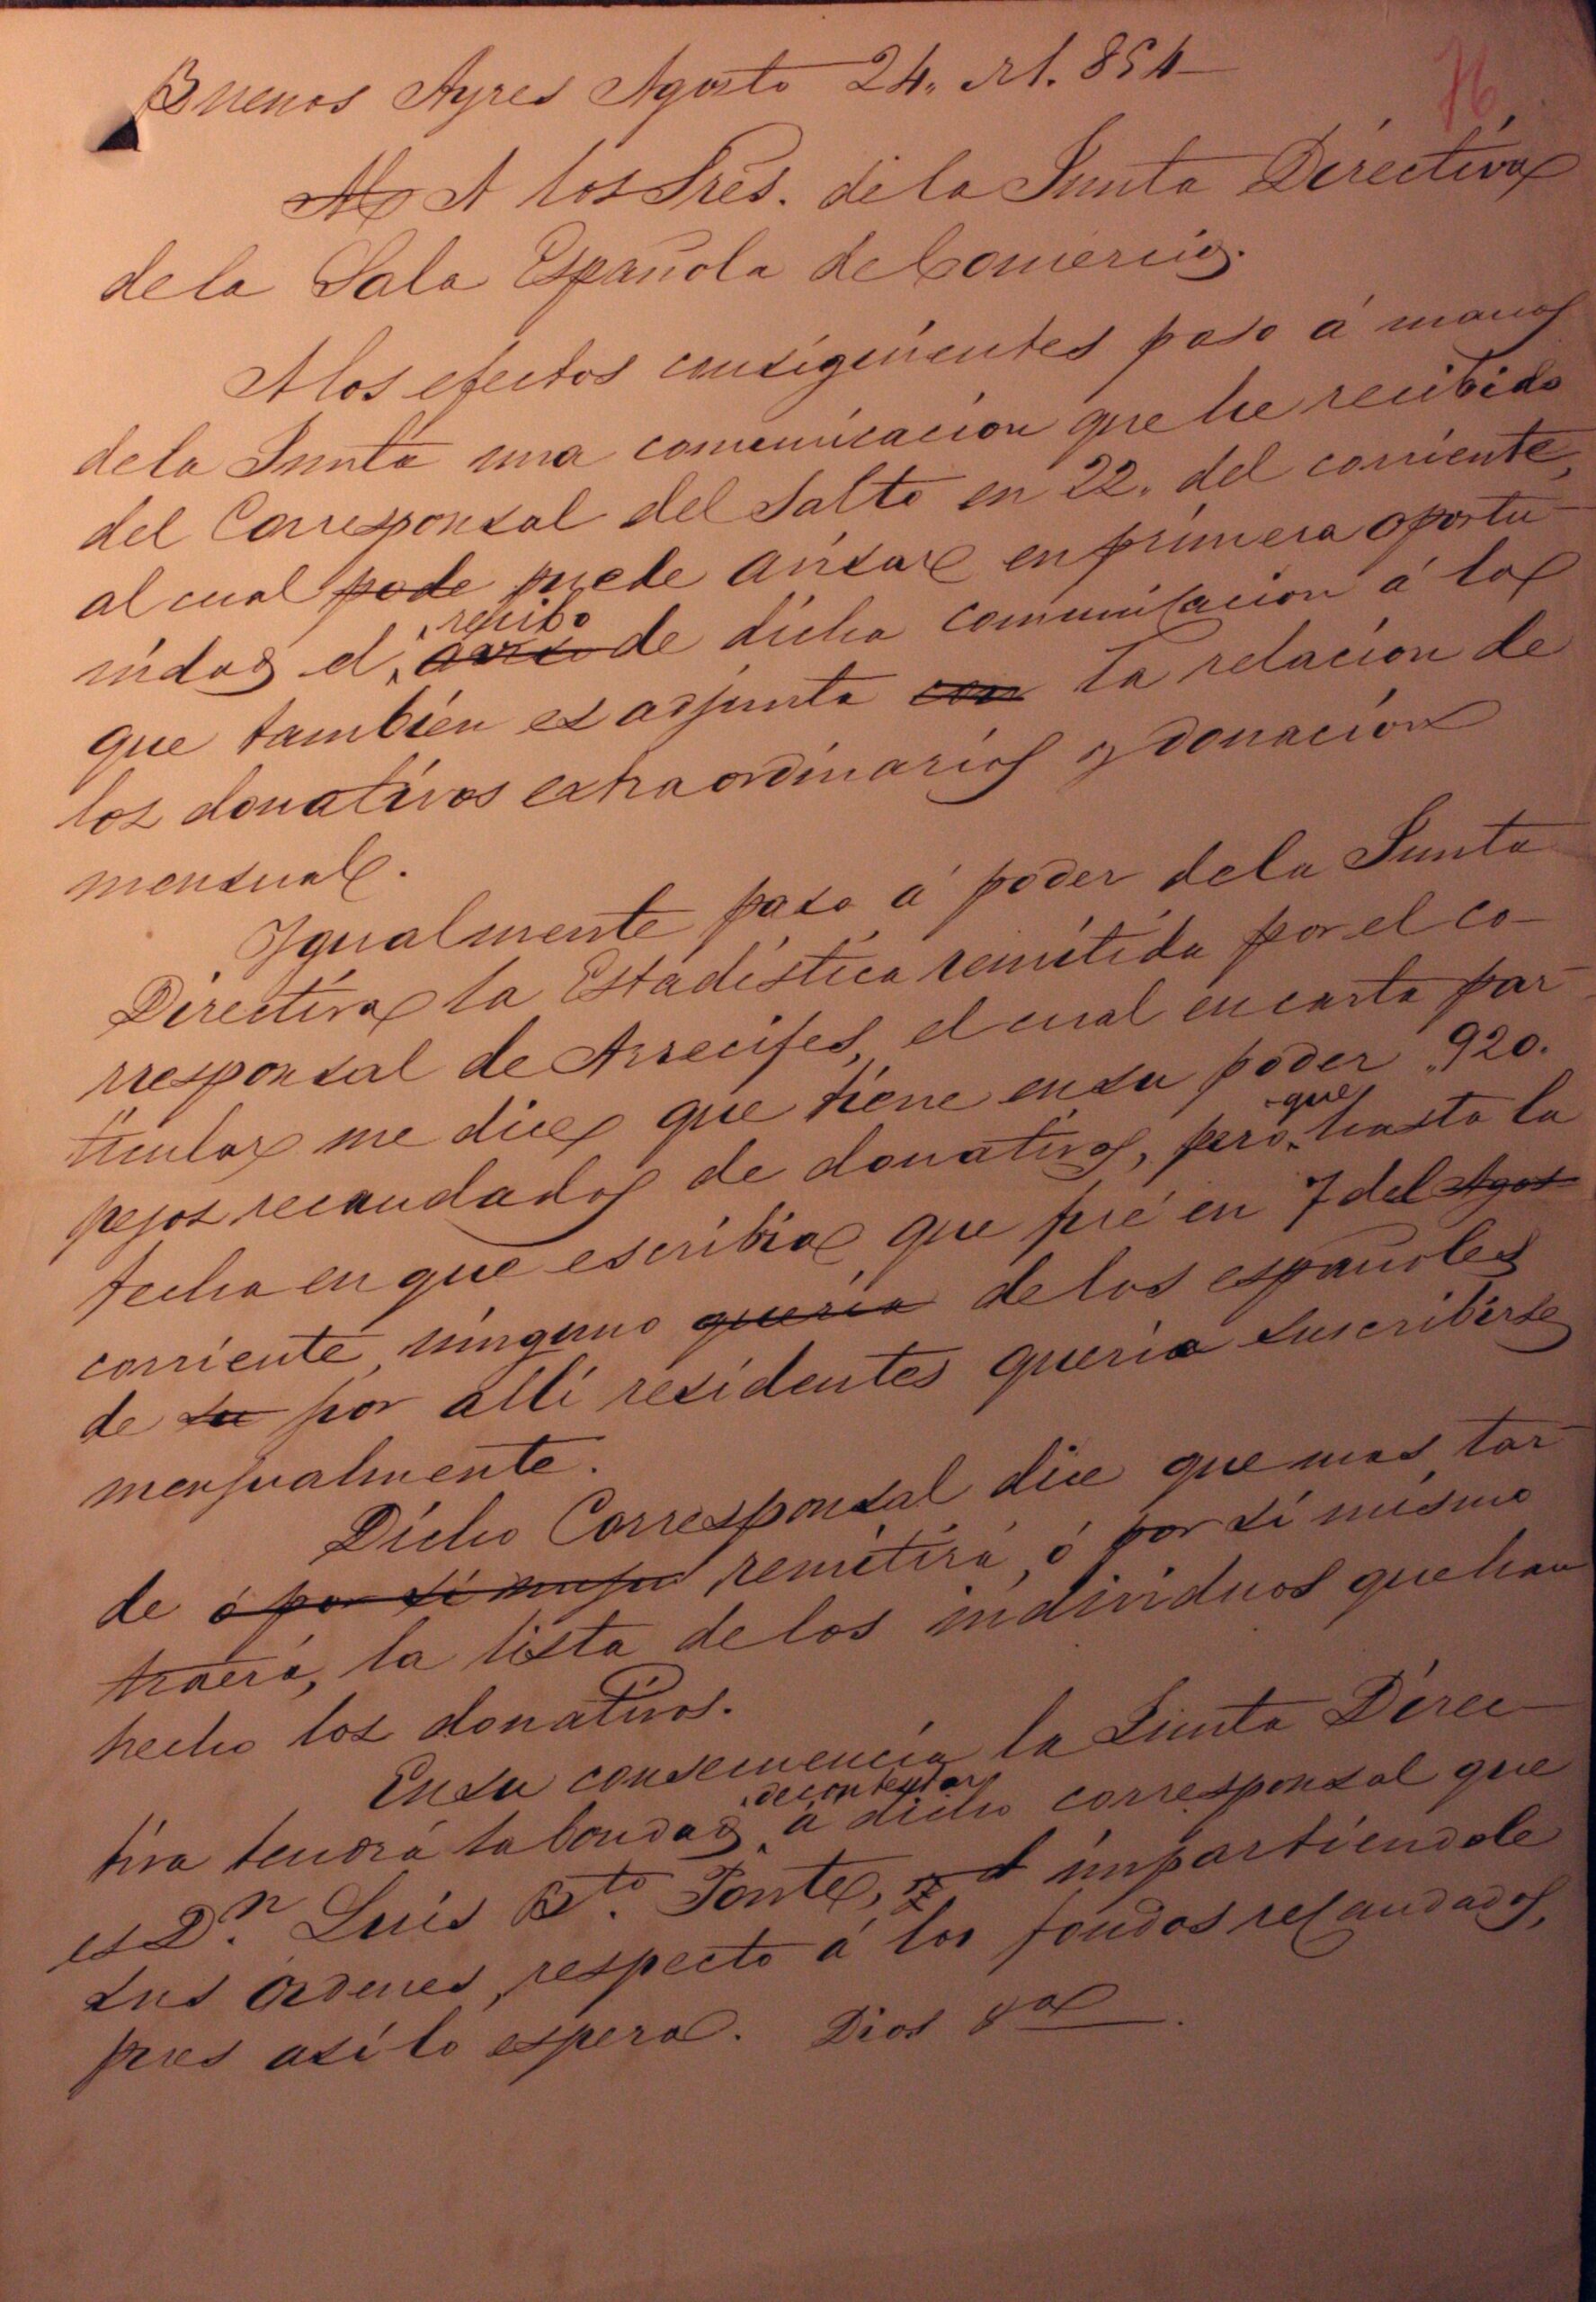 Buenos Ayres Agosto 24. M. 854
76
A los Sres. de la Junta Directiva
de la Sala Española de Comercio.
A los efectos consiguientes paso á manos
de la Junta una comunicacion que he recibido
del Corresponsal del Salto en 22. del corriente,
al cual pode puede avisar en primera oportu-
nidad el aviso recibo de dicha comunicacion á la
que tambien es adjunta con la relacion de
los donativos extraordinarios y donacion
mensual.
Igualmente paso á poder de la Junta
Directiva la Estadistica remitida por el co-
rresponsal de Arrecifes, el cual en carta par-
ticular me dice que tiene en su poder "920.
pesos recaudados de donativos, pero que hasta la
fecha en que escribia que fué en 7 del Agost
corriente, ninguno queria de los españoles
de su por alli residentes queria suscribirse
mensualmente.
Dicho Corresponsal dice que mas tar-
de ó por si mismo remitirá, ó por si mismo
traerá, la lista de los individuos que han
hecho los donativos.
En su consecuencia la Junta Direc-
tiva tendrá la bondad de contestar á dicho corresponsal que
es Dn. Luis Bto. Ponte, impartiendole
sus ordenes, respecto á los fondos recaudados,
pues asi lo espera. Dios &a.